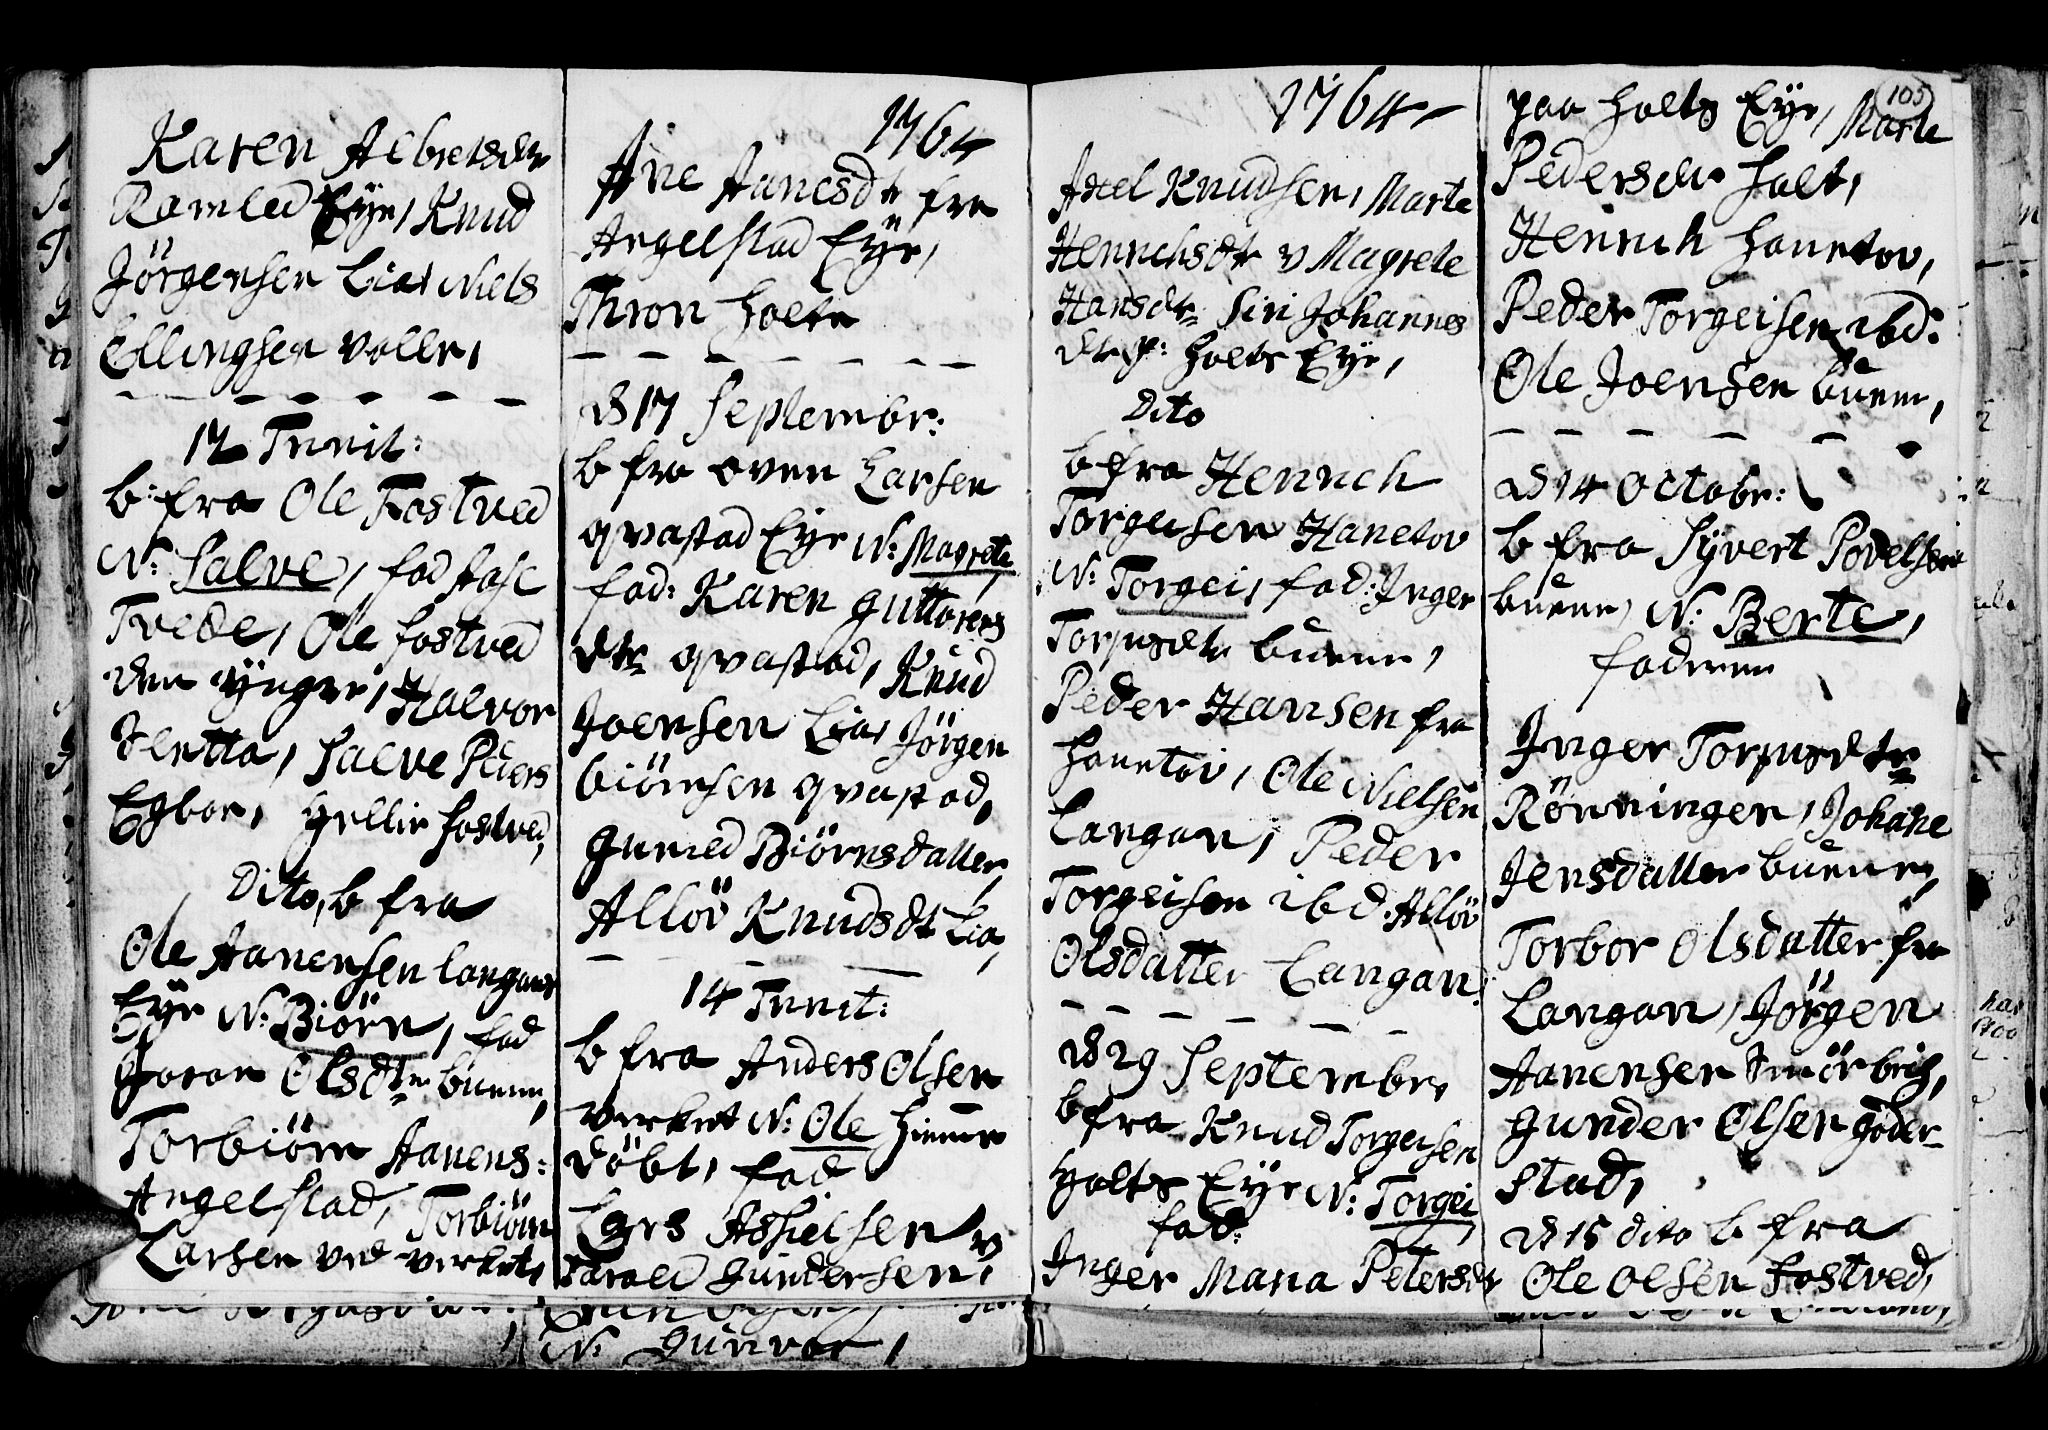 Karen Albretsdtr
Ramled Eye, Knud
Jörgensen Lia, Niels
Ellingsen Volle,
12 Trinit:
b: fra Ole Fostved
N: Salve, fad Aase
Tvede, Ole Fostved
den yngre, Halvor
Salve Peders
Egbor, Fostved,
Dito, b fra
Ole Aanensen Langans
Eye N: Biörn, fad
Joran Olsdtr buene,
Torbiörn Aanens:
Angelstad, Torbiörn
Larsen ved verket,
1764
Ane Aanesdtr fra
Angelstad Eye,
Thron Holte
D 17 Septembr:
b fra oven Larsen
qvastad Eye N: Magrete,
fad: Karen Guttorms
dtr qvastad, Knud
Joensen Lia, Jörgen
Biörnsen qvastad,
Gunild Biörnsdatter,
Allöv Knudsdt Lia,
14 Trinit:
b fra Anders Olsen
verket N: Ole hiemme
döbt, fad
Lars Aslielsen v
Tarald Gundersen,
N: Gunvor,
1764
Axel Knudsen, Marte
Henrichsdtr v Magrete
Hansdtr Siri Johannes
dtr p: Holts Eye,
Dito
b fra Henrich
Torgeisen Hanetov
N: Torgei, fad: Inger
Torjusdtr buene,
Peder Hansen fra
Hanetov, Ole Nielsen
Langan, Peder
Torgeisen ibd. Allöv
Olsdatter Langan.
D 29 Septembr,
b fra Knud Torgeisen
Holts Eye N: Torgei,
fad:
Inger Maria Petersdtr
105
paa Holts Eye, Marte
Pedersdtr Holt,
Henrich Hanetov,
Peder Torgeisen ibd:
Ole Joensen buene,
D 14 Octobr:
b fra Syvert Povelsen
buene, N: Berte,
fadrene
Inger Torjusdtr
Rönningen, Johane
Jensdatter buene,
Torbor Olsdatter fra
Langan, Jörgen
Aanensen Smörbrig,
Gunder Olsen Goder-
stad,
D 15 dito b fra
Ole Olsen Fostved,